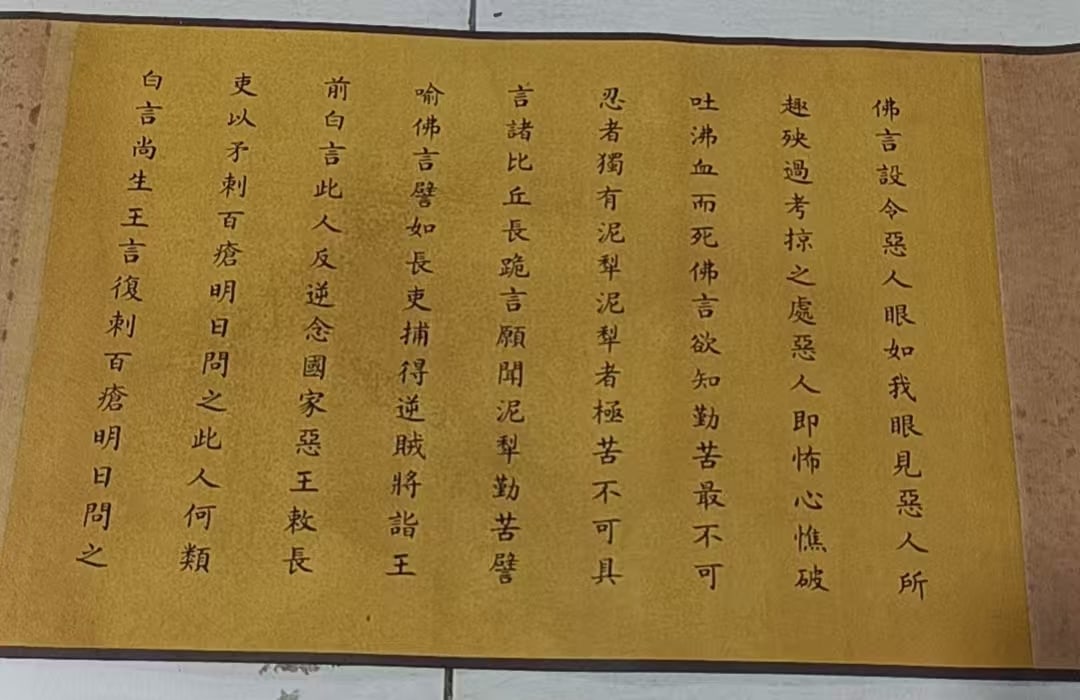 佛言設令惡人眼如我眼見惡人所
趣殃過考掠之處惡人即怖心憔破
吐沸血而死佛言欲知勤苦最不可
忍者獨有泥犁泥犁者極苦不可具
言諸比丘長跪言願聞泥犁勤苦譬
喻佛言譬如長吏捕得逆賊將詣王
前白言此人反逆念國家惡王敕長
吏以矛刺百瘡明日問之此人何類
白言尚生王言復刺百瘡明日問之